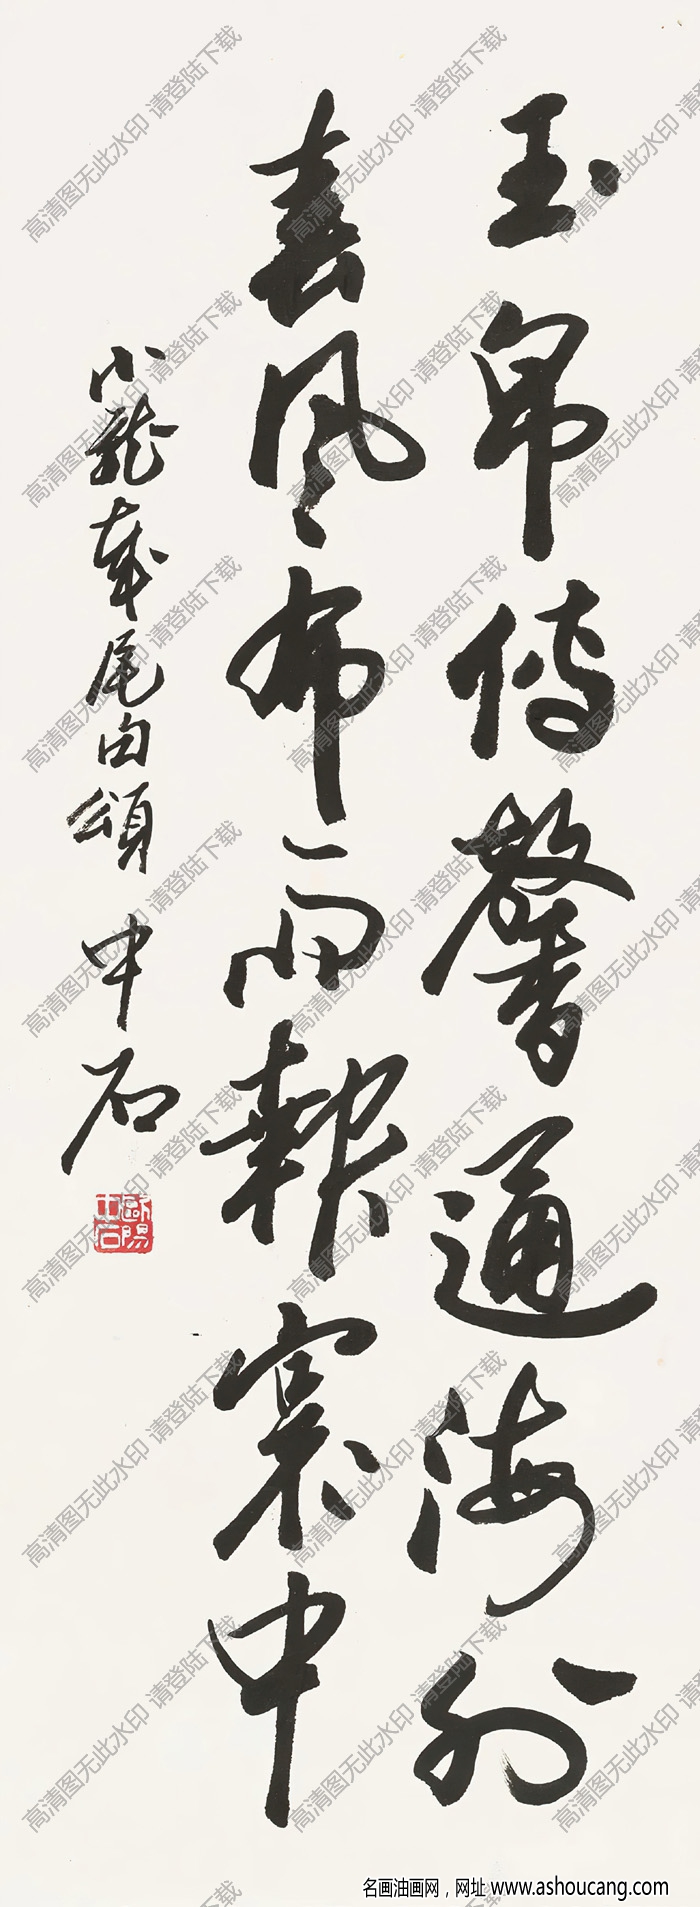 玉帛傳馨通海外
春風布雨報寰中
小龍歲尾頌 中石
歐陽中石
高清图无此水印 请登陆下载
名画油画网，网址 www.ashoucang.com